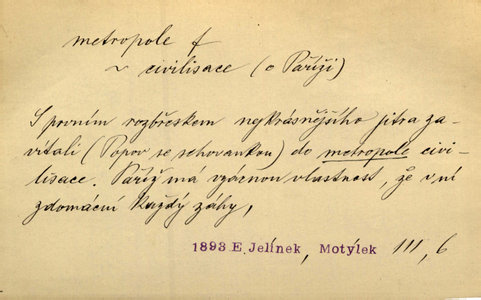 metropole f
~ civilisace (o Paříži)
S prvním rozbřeskem nejkrásnějšího jitra za-
vítali (Popov se schovankou) do metropole civi-
lisace. Paříž má vzácnou vlastnost, že v ní
zdomácní každý záhy,
1893 E. Jelínek, Motýlek III, 6